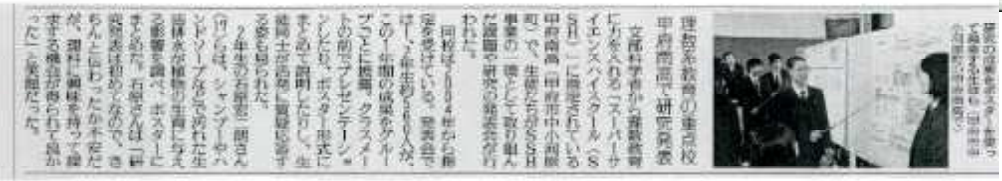 研究の成果をポスターを使っ
て発表する生徒ら＝甲府市中
小河原町で（甲府南高で）
理数系教育の重点校
甲府南高で研究発表
文部科学省から理数教育
に力を入れる「スーパーサ
イエンスハイスクール（Ｓ
ＳＨ）」に指定されている
甲府南高（甲府市中小河原
町）で、生徒たちがＳＳＨ
事業の一環として取り組ん
だ課題や研究の発表会が行
われた。
同校は２００４年から指
定を受けている。発表会で
は１、２年生約５６０人が、
この１年間の成果をグルー
プごとに披露。クラスメー
トの前でプレゼンテーショ
ンしたり、ポスター形式に
まとめて説明したりし、生
徒同士が活発に質疑応答す
る姿も見られた。
２年生の石原
らは、シャンプーやハ
ンドソープなどで汚れた生
活排水が植物の生育に与え
る影響を調べ、ポスターに
まとめた。石原さんは「研
究発表は初めてなので、き
ちんと伝わったか不安だ
が、理科に興味を持って探
求する機会が得られて良か
った」と笑顔だった。